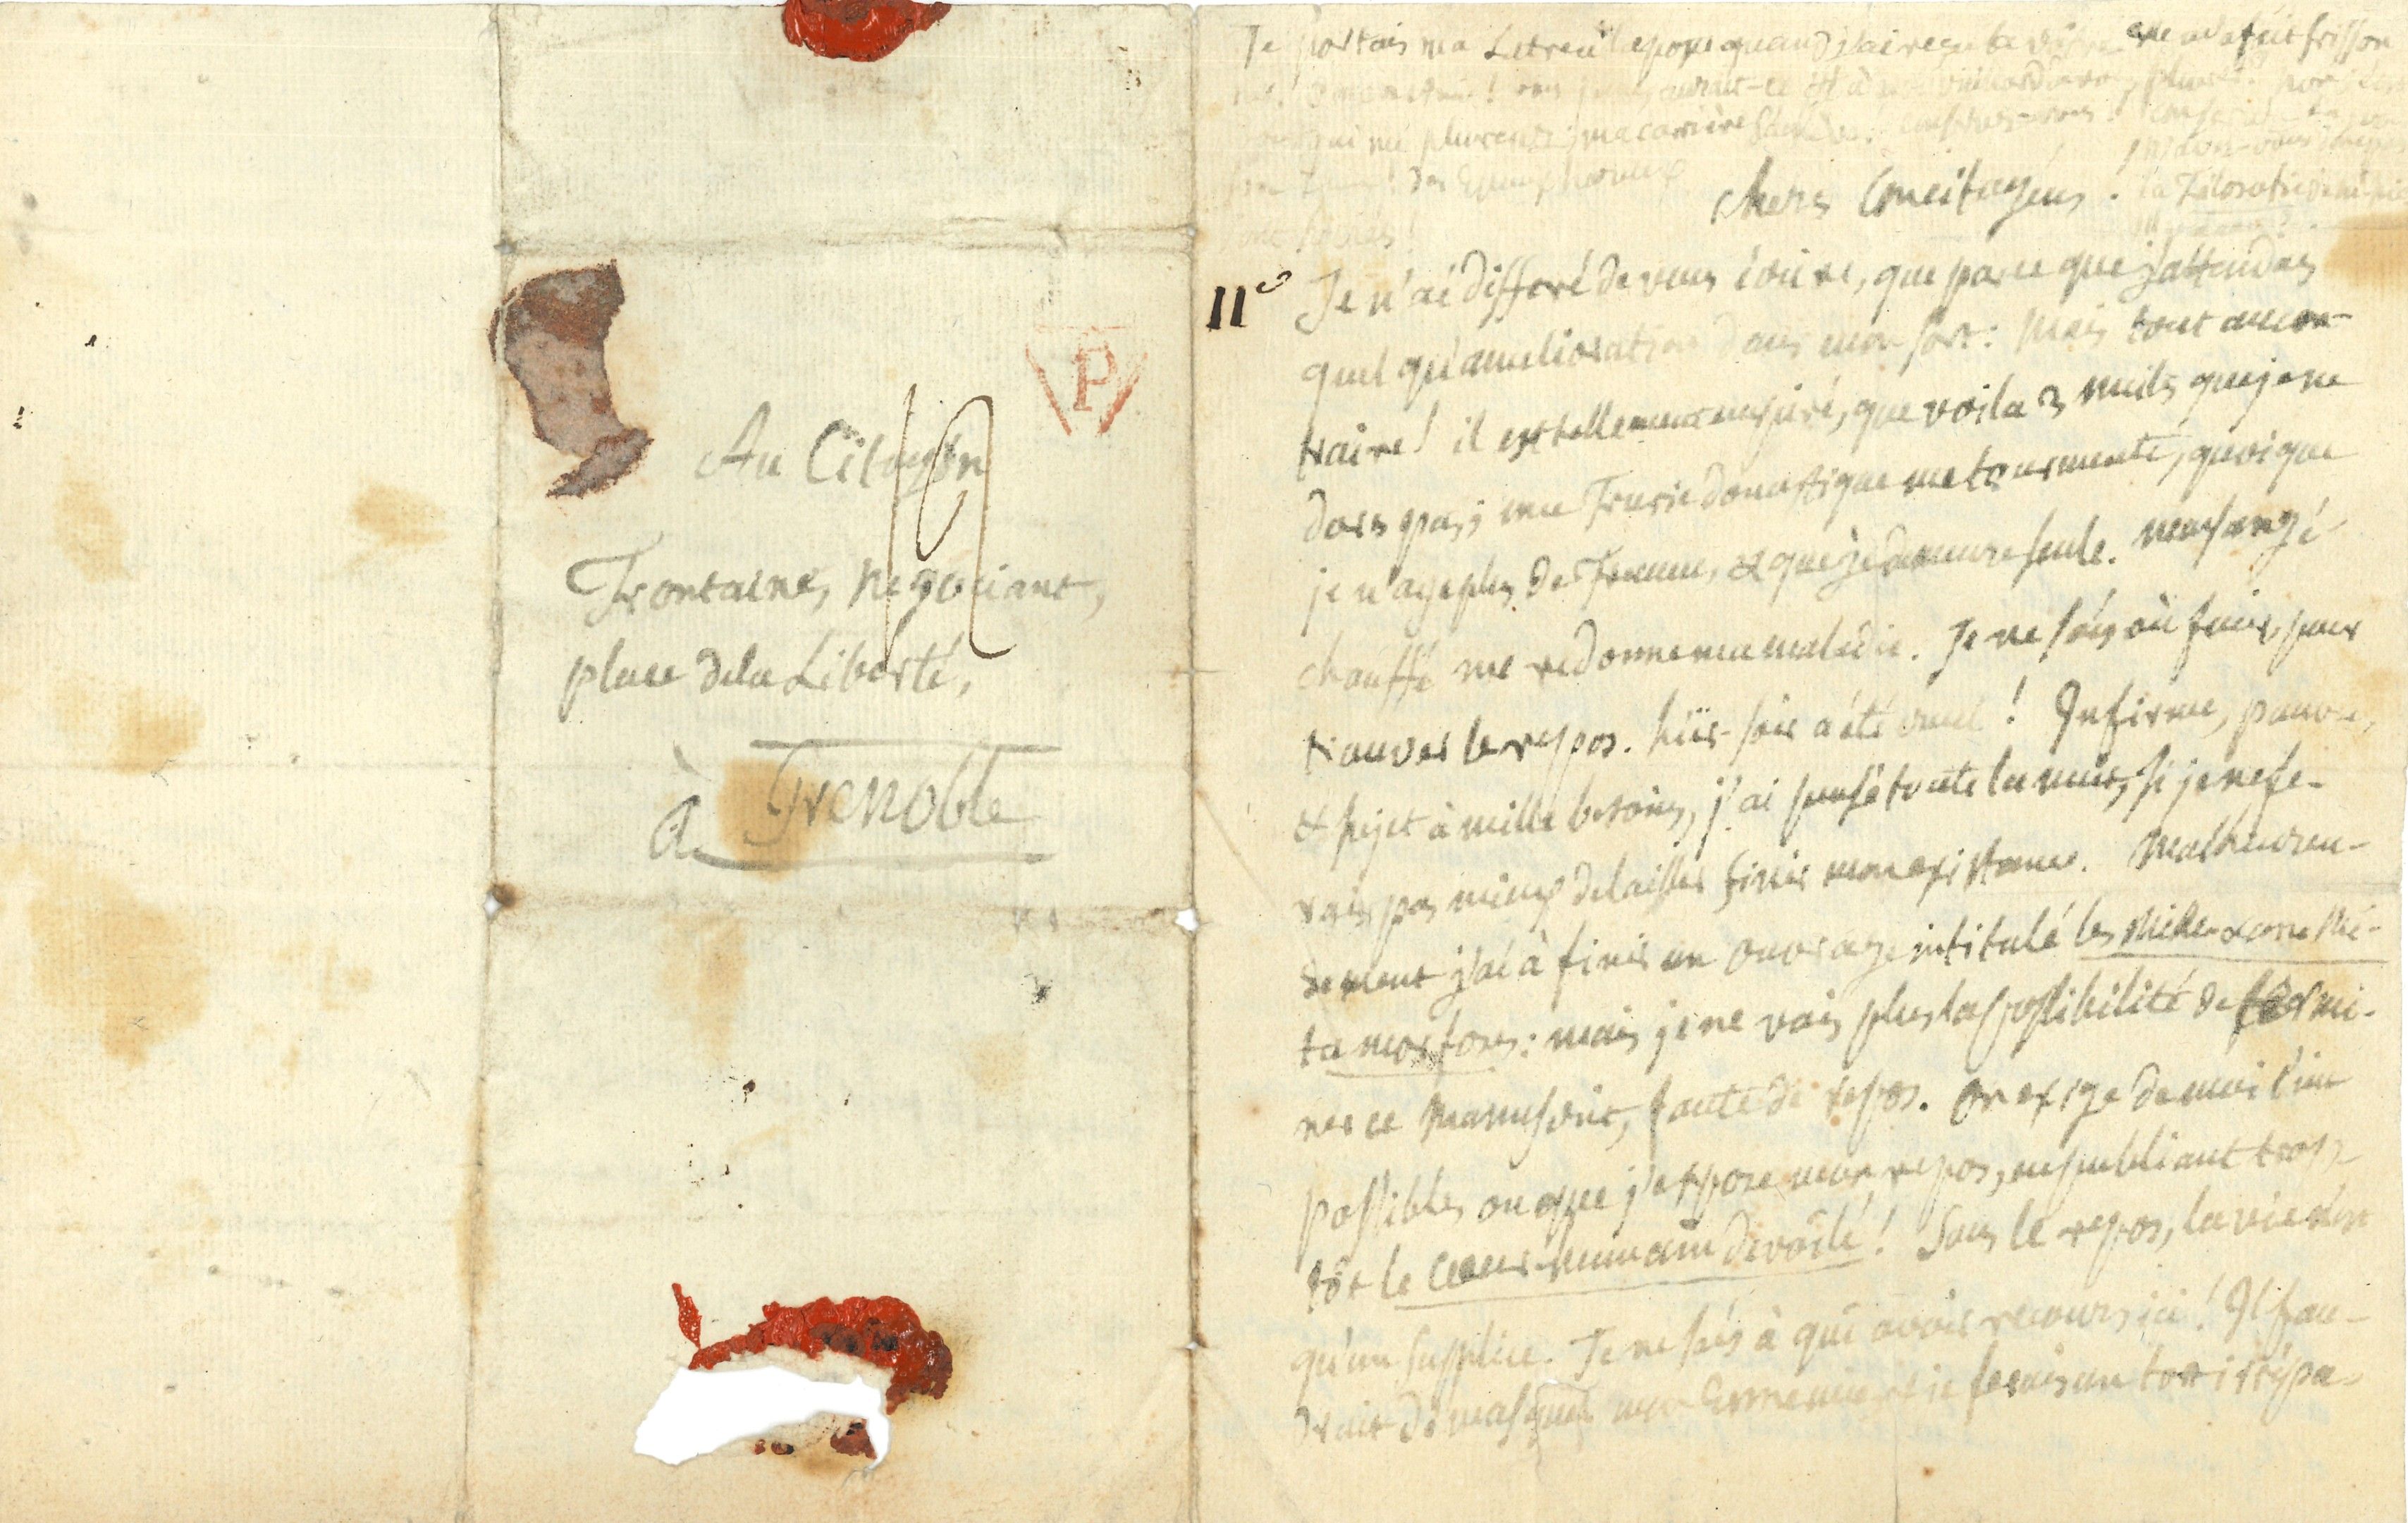 P
12
Au Citoyen
Frontaine, Negociant,
place dela Liberté,
à Grenoble
Je portais ma Lettre à la poste quand j'ai reçu la vôtre elle m'a fait frisson
né!
qui me pleurerez; ma carière conservez-vous!
chers Concitoyens! la Filosofie
11e Je n'ai différé de vous écrire, que parce que j'attendais
quelqu'amelioration dans mon sort: Mais tout aucon-
traire! il est tellement empiré, que voila 3 nuits que je ne
dors pas; une Furie domestique me tourmente, quoique
je n'aye plus de Femme, & que je demeure seule. mon sang é-
chauffé me redonne ma maladie. Je ne sais où fuir, pour
trouver le repos. hiër-soir a été cruel! Infirme, pauvre,
& sujet à mille besoins, j'ai pensé toute la nuit, si je ne fe-
rais pas mieux de laisser finir mon existance. Malheureu-
sement j'ai à finir un Ouvrage intitulé les Mille & une Mé-
tamorfoses: mais je ne vois plus la possibilité de termi-
ner ce Manuscrit, faute de repos. On exige de moi l'im
possible, ou que j'expose mon repos, en publiant trop-
tôt le Cœur-humain dévoilé! Sans le repos, la vie n'est
qu'un supplice. Je ne sais à qui avoir recours ici! Il fau-
drait démasquer mon Ennemie, & je ferais un tort irrépa-